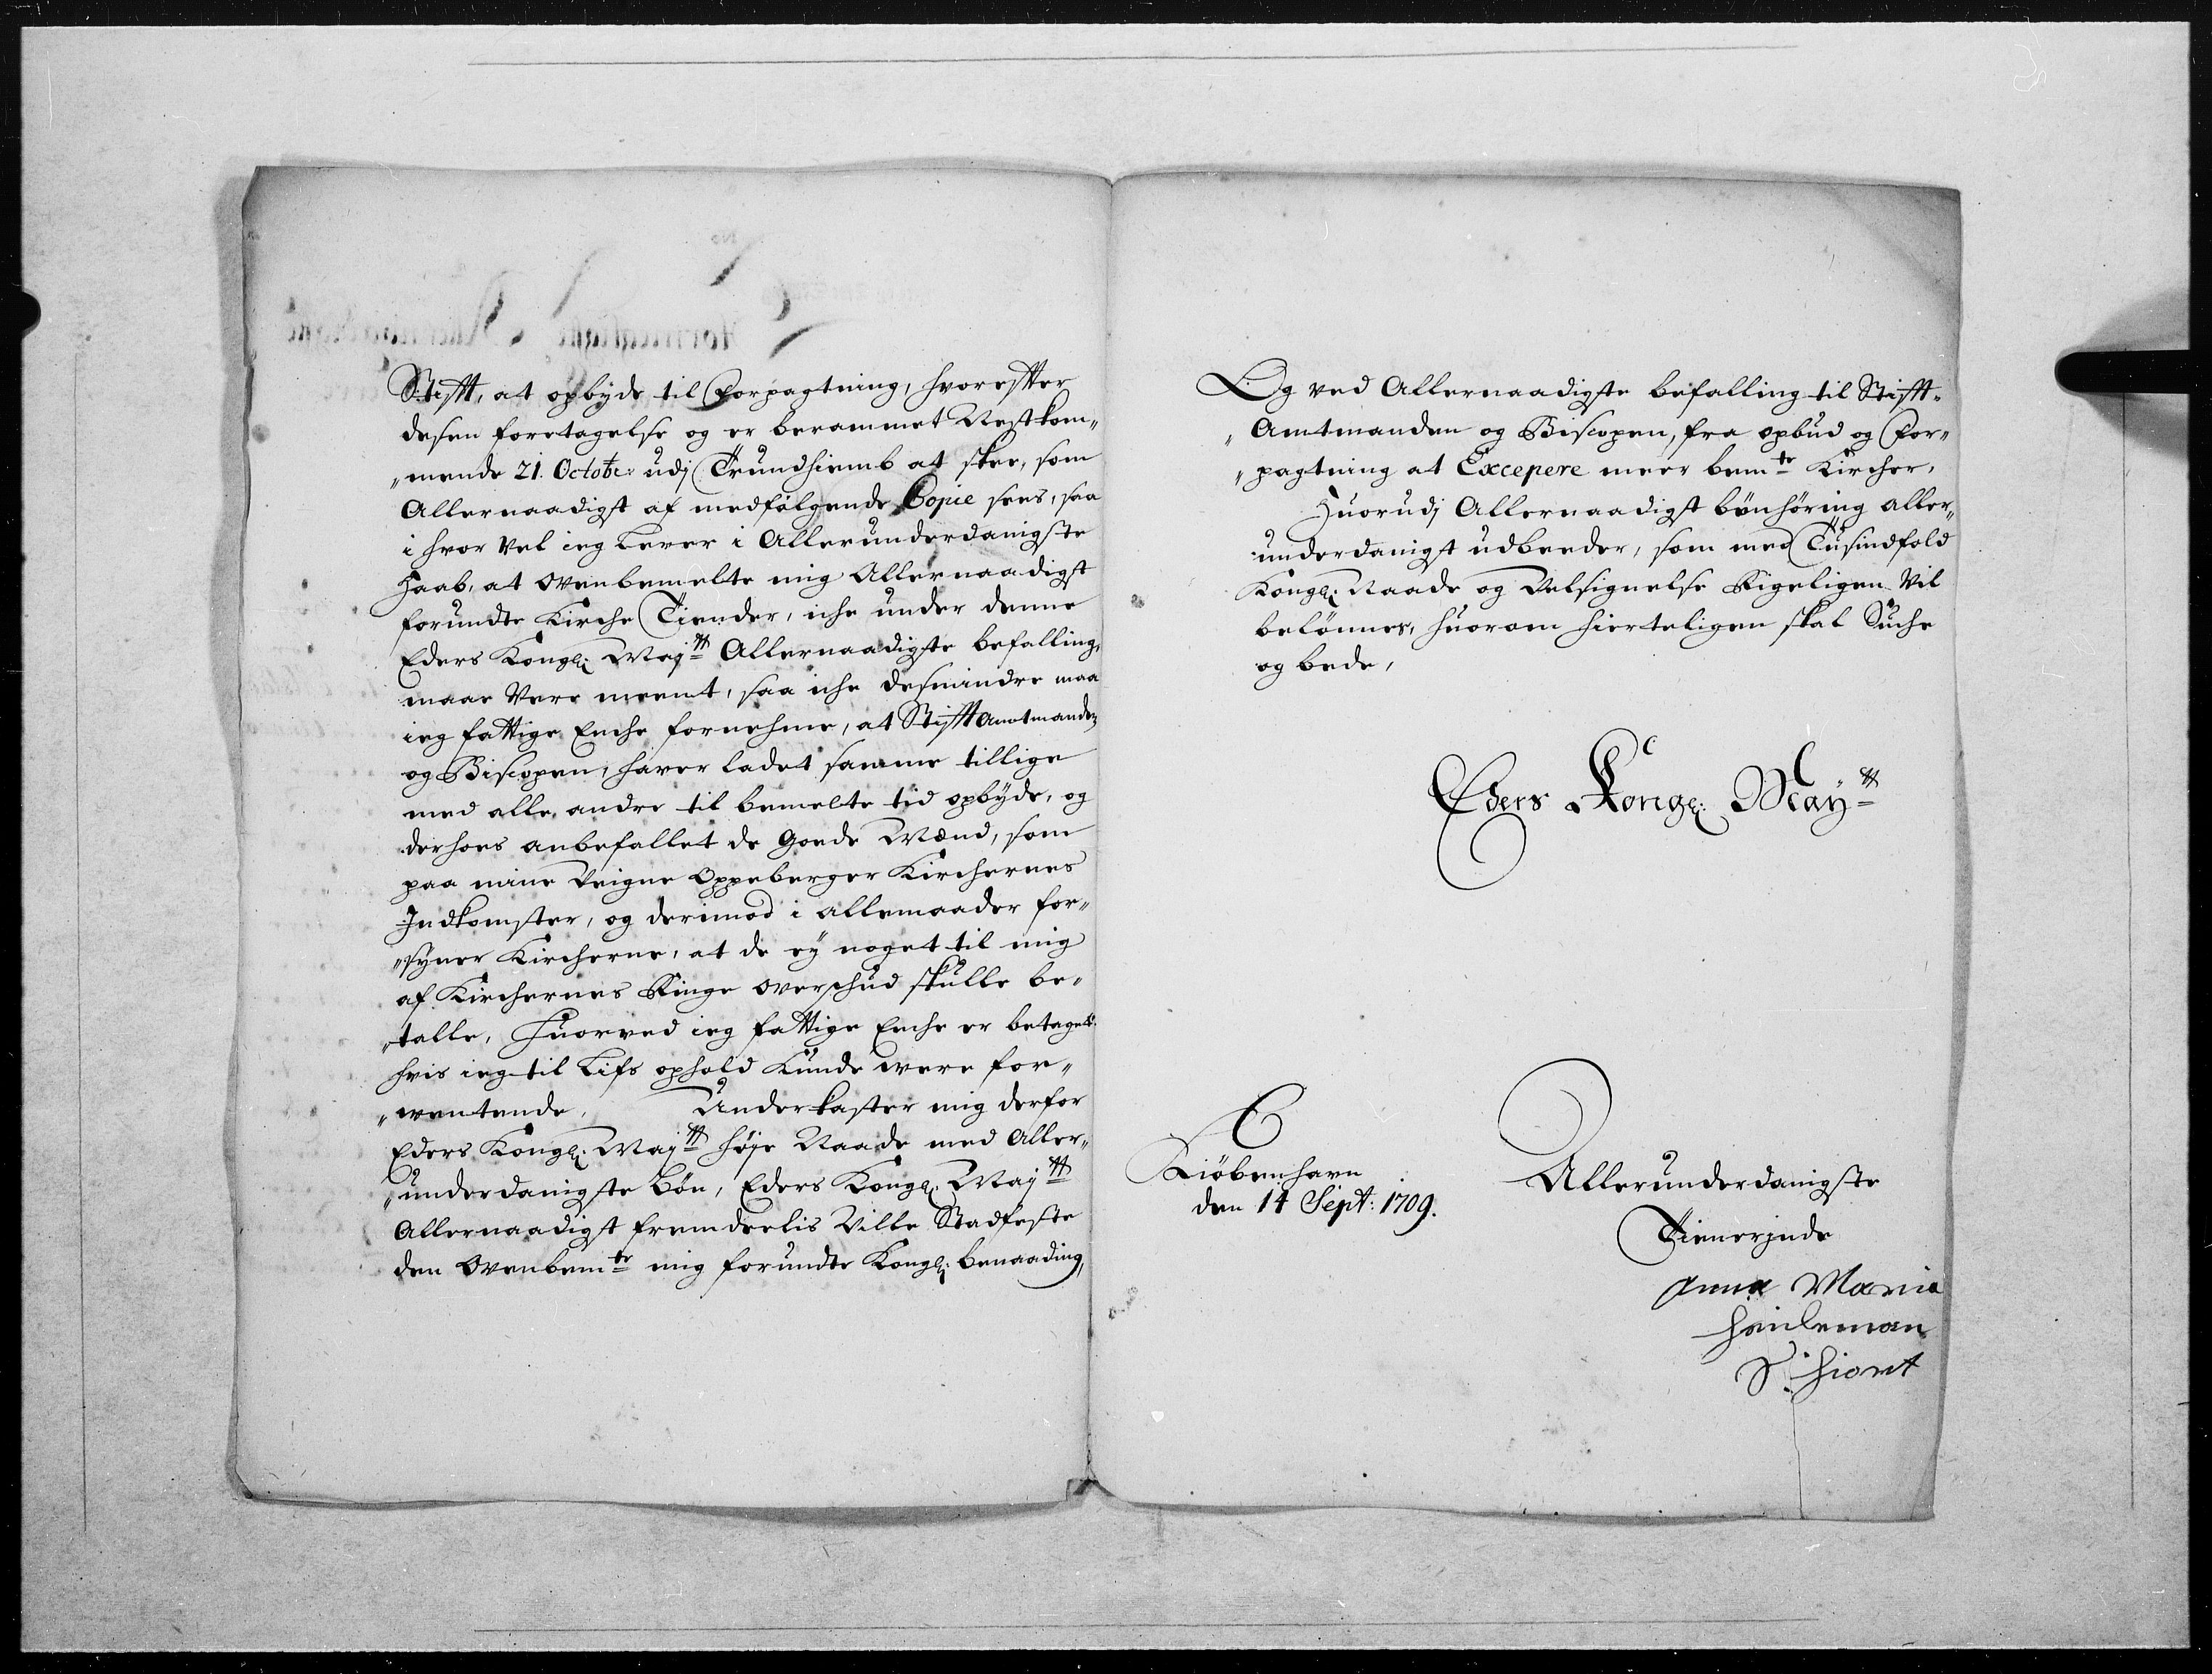 Stifft, at opbyde til Forpagtning, hvorefter
desen foretagelse og er berammet Nestkom„
„mende 21. Octobr: udj Trundhiemb at skee, som
Allernaadigst af medfølgende Copie sees, saa
i hvor vel ieg lever i Allerunderdanigste
Haab, at ovenbemelte mig Allernaadigst
forundte Kirche Tiender, iche under denne
Eders Kongl: Maj:tt Allernaadigste befalling,
maae være meent, saa iche desmindre maa
ieg fattige Enche fornehme, at Stifft Amtmanden
og Biscopen, haver ladet samme tillige
med alle andre til bemelte tid opbyde, og
derhoes anbefallet de Goede Mænd, som
paa mine Veigne Oppeberger Kirchernes
Indkomster, og derimod i allemaader for„
„syner Kircherne, at de ej noget til mig
af Kirchernes Ringe overschud skulle be„
„talle, Huorved ieg fattige Enche er betaget
hvis ieg til Lifs ophold Kunde were for„
„wentende. Underkaster mig derfor
Eders Kongl: Maj:tt høje Naade med Aller„
„underdanigste bøn, Eders Kongl: Maj:tt
Allernaadigst fremdeelis Ville Stadfeste
den Ovenbem:te mig forundte Kongl: benaading,
Og ved Allernaadigste befalling til Stifft„
„Amtmanden og Biscopen, fra opbud og For„
„pagtning at Excepere meer bem:te Kircher,
Huorudj Allernaadigst bønhøring aller„
underdanigst udbeeder, som med Tusindfold
Kongl: Naade og Velsignelse Rigeligen Vil
belønnes, huorom hierteligen skal Suche
og bede,
Eders Kongl: May:tt
Kiøbenhavn
den 14 Sept: 1709.
Allerunderdanigste
Tienerjnde
Anna Maria
S: Hiort